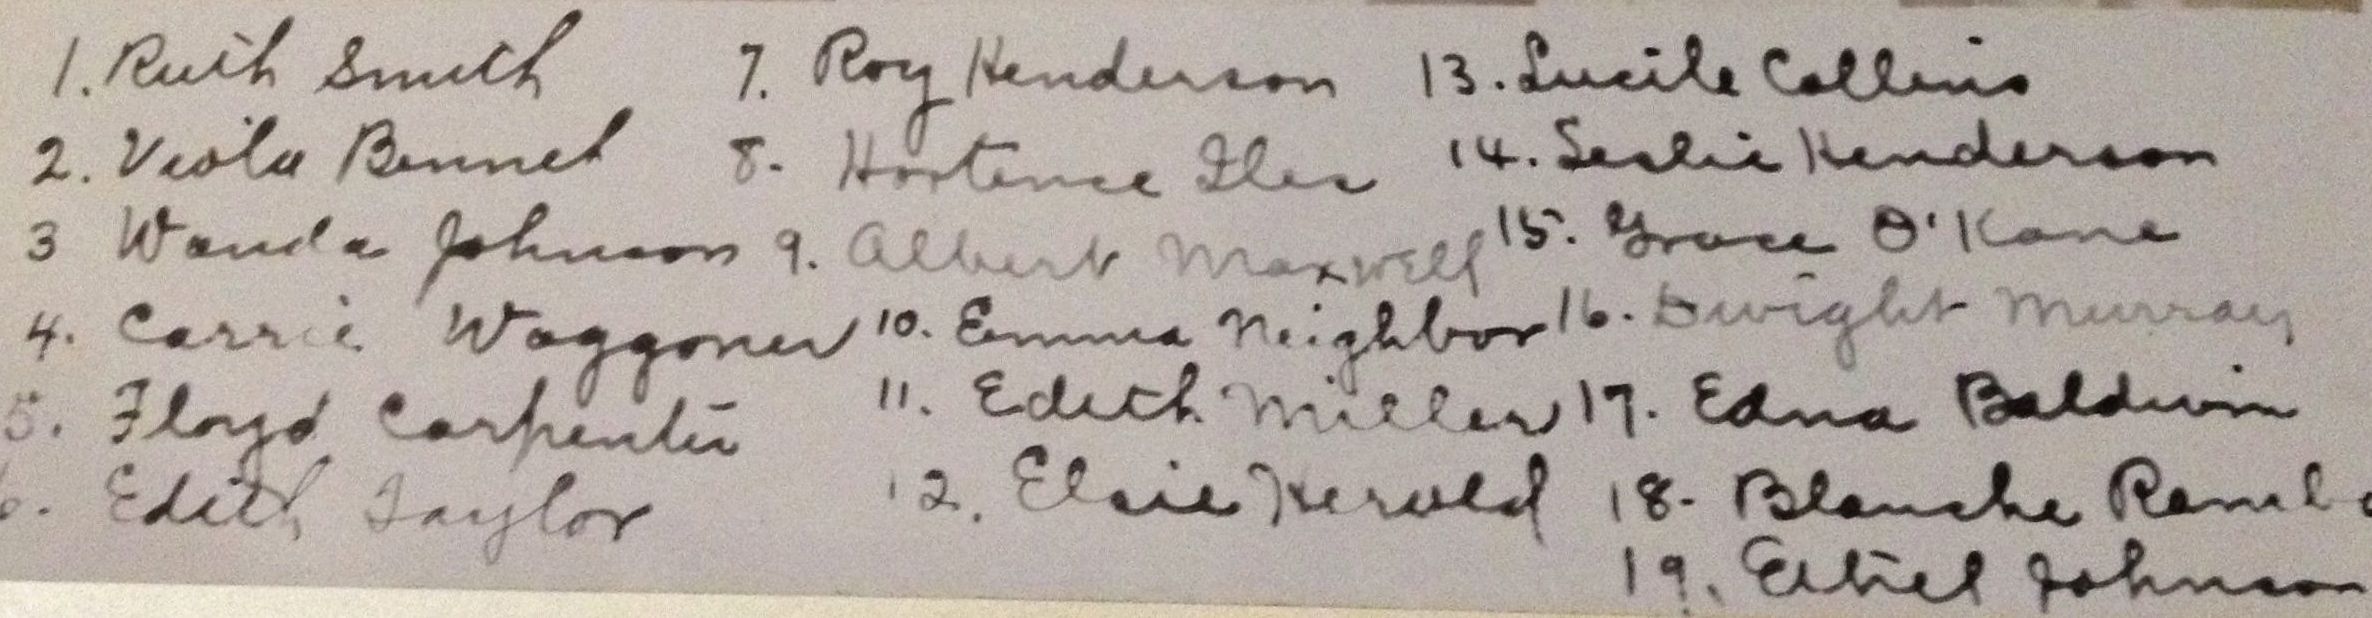 1. Ruth Smith
2. Viola Bennet
3 Wanda Johnson
4. Carrie Waggoner
5. Floyd Carpenter
6. Edith Taylor
7. Roy Henderson
8. Hortence Iles
9. Albert Maxwell
10. Emma Neighbor
11. Edith Miller
12. Elsie Herold
13. Lucile Collins
14. Leslie Henderson
15. Grace O'Kane
16. Dwight Murray
17. Edna Baldwin
18. Blanche
19. Ethel Johnson